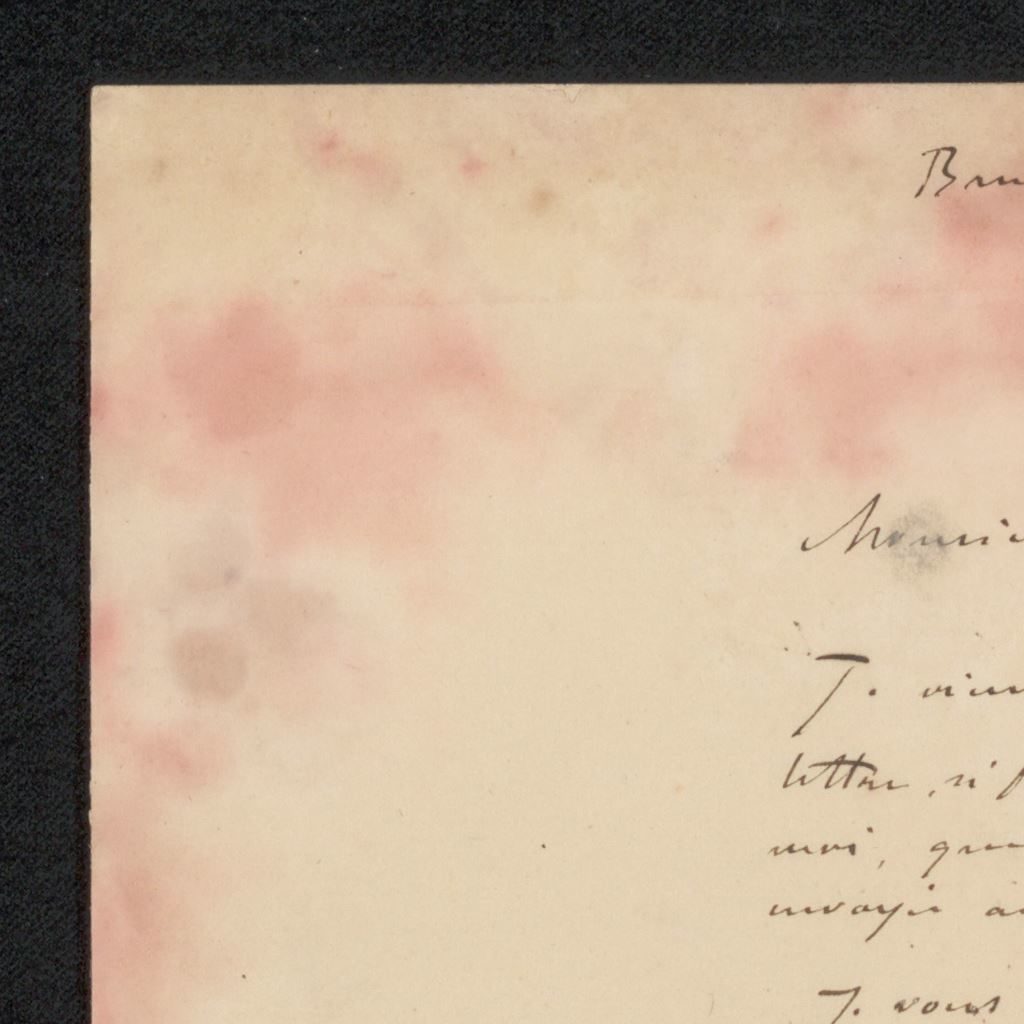 Bru
Monsie
Je viens
lettre, si f
moi, que
envoyée a
Je vous